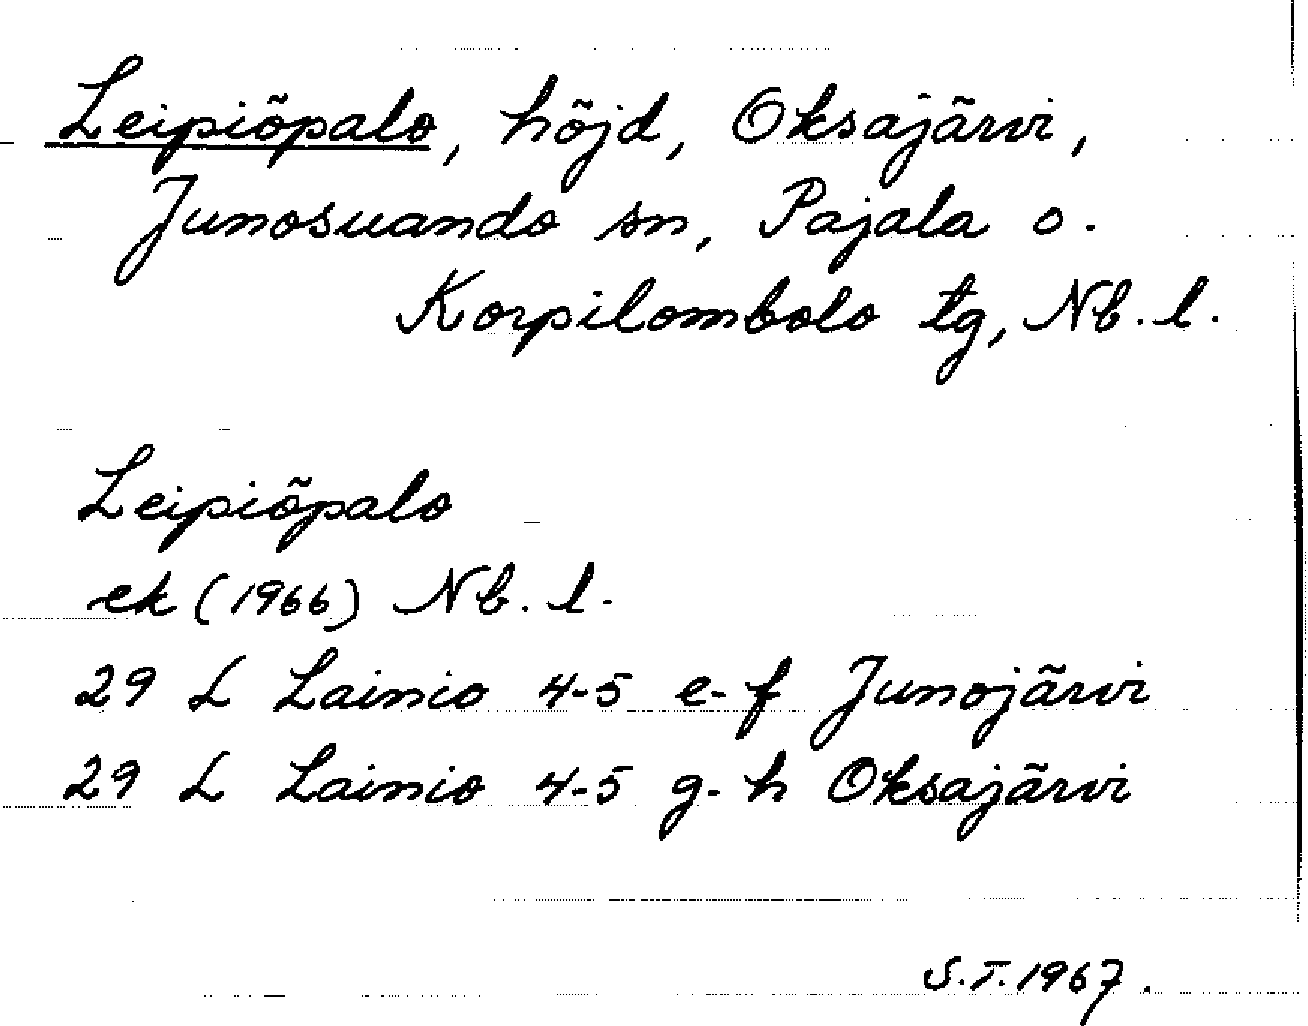 Leipiöpalo, höjd, Oksajärvi,
Junosuando sn, Pajala o.
Korpilombolo tg, Nb. l.
Leipiöpalo
ek (1966) Nb. l.
29 L Lainio 4-5 e-f Junojärvi
29 L Lainio 4-5 g-h Oksajärvi
S.T. 1967.